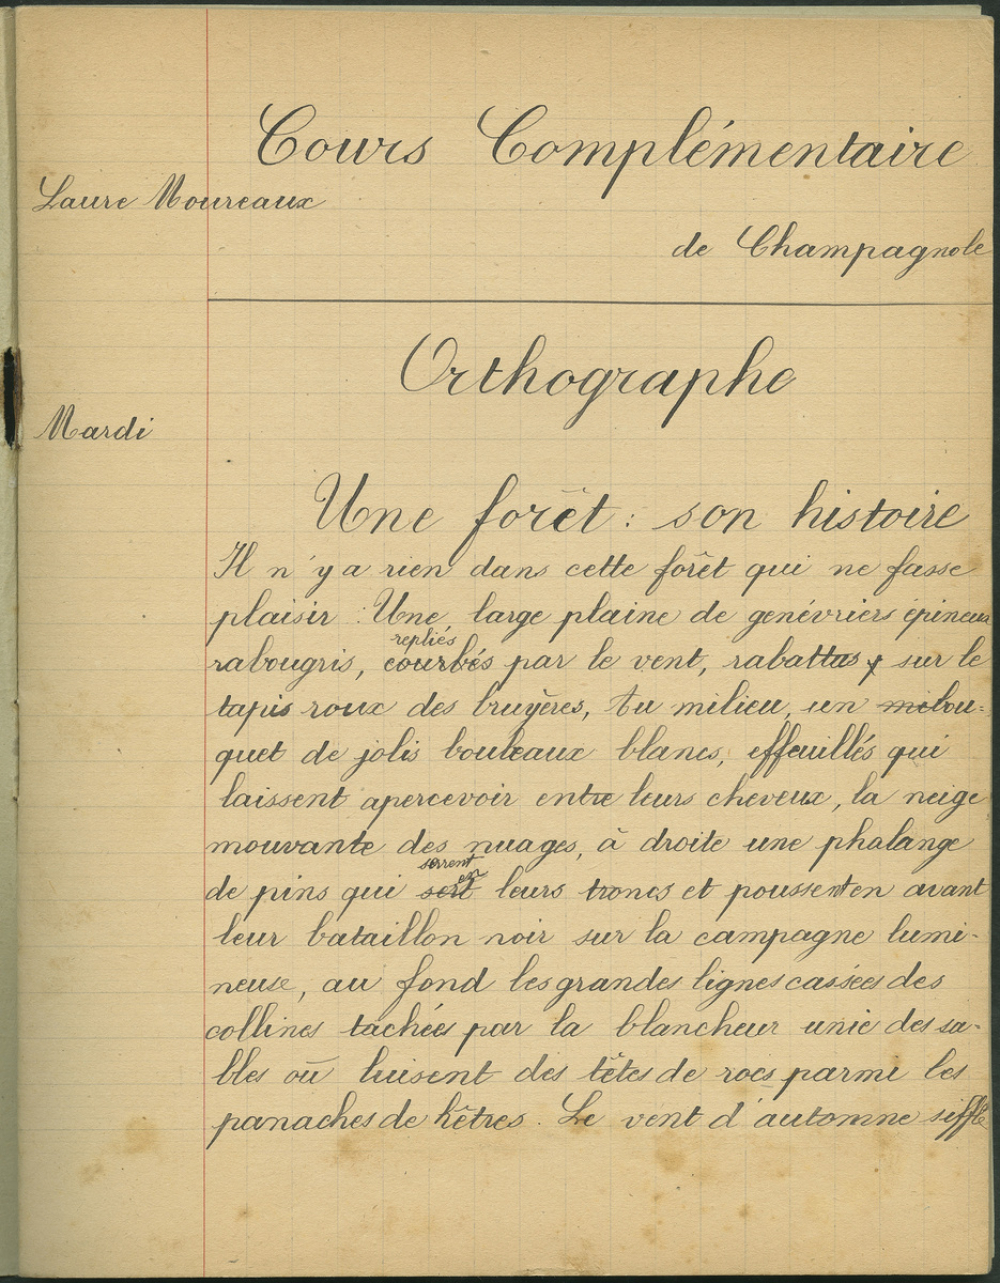 Cours Complémentaire
Laure Moureaux
de Champagnole
Orthographe
Mardi
Une forêt : son histoire
Il n'y a rien dans cette forêt qui ne fasse
plaisir : Une large plaine de genévriers épineux
repliés
rabougris, courbés par le vent, rabattus sur le
tapis roux des bruyères, Au milieu, un bou-
quet de jolis bouleaux blancs, effeuillés qui
laissent apercevoir entre leurs cheveux, la neige
mouvante des nuages, à droite une phalange
serrent
en
de pins qui sert leurs troncs et poussent en avant
leur bataillon noir sur la campagne lumi-
neuse, au fond les grandes lignes cassées des
collines tachées par la blancheur unie des sa-
bles où luisent des têtes de rocs parmi les
panaches de hêtres. Le vent d'automne siffle